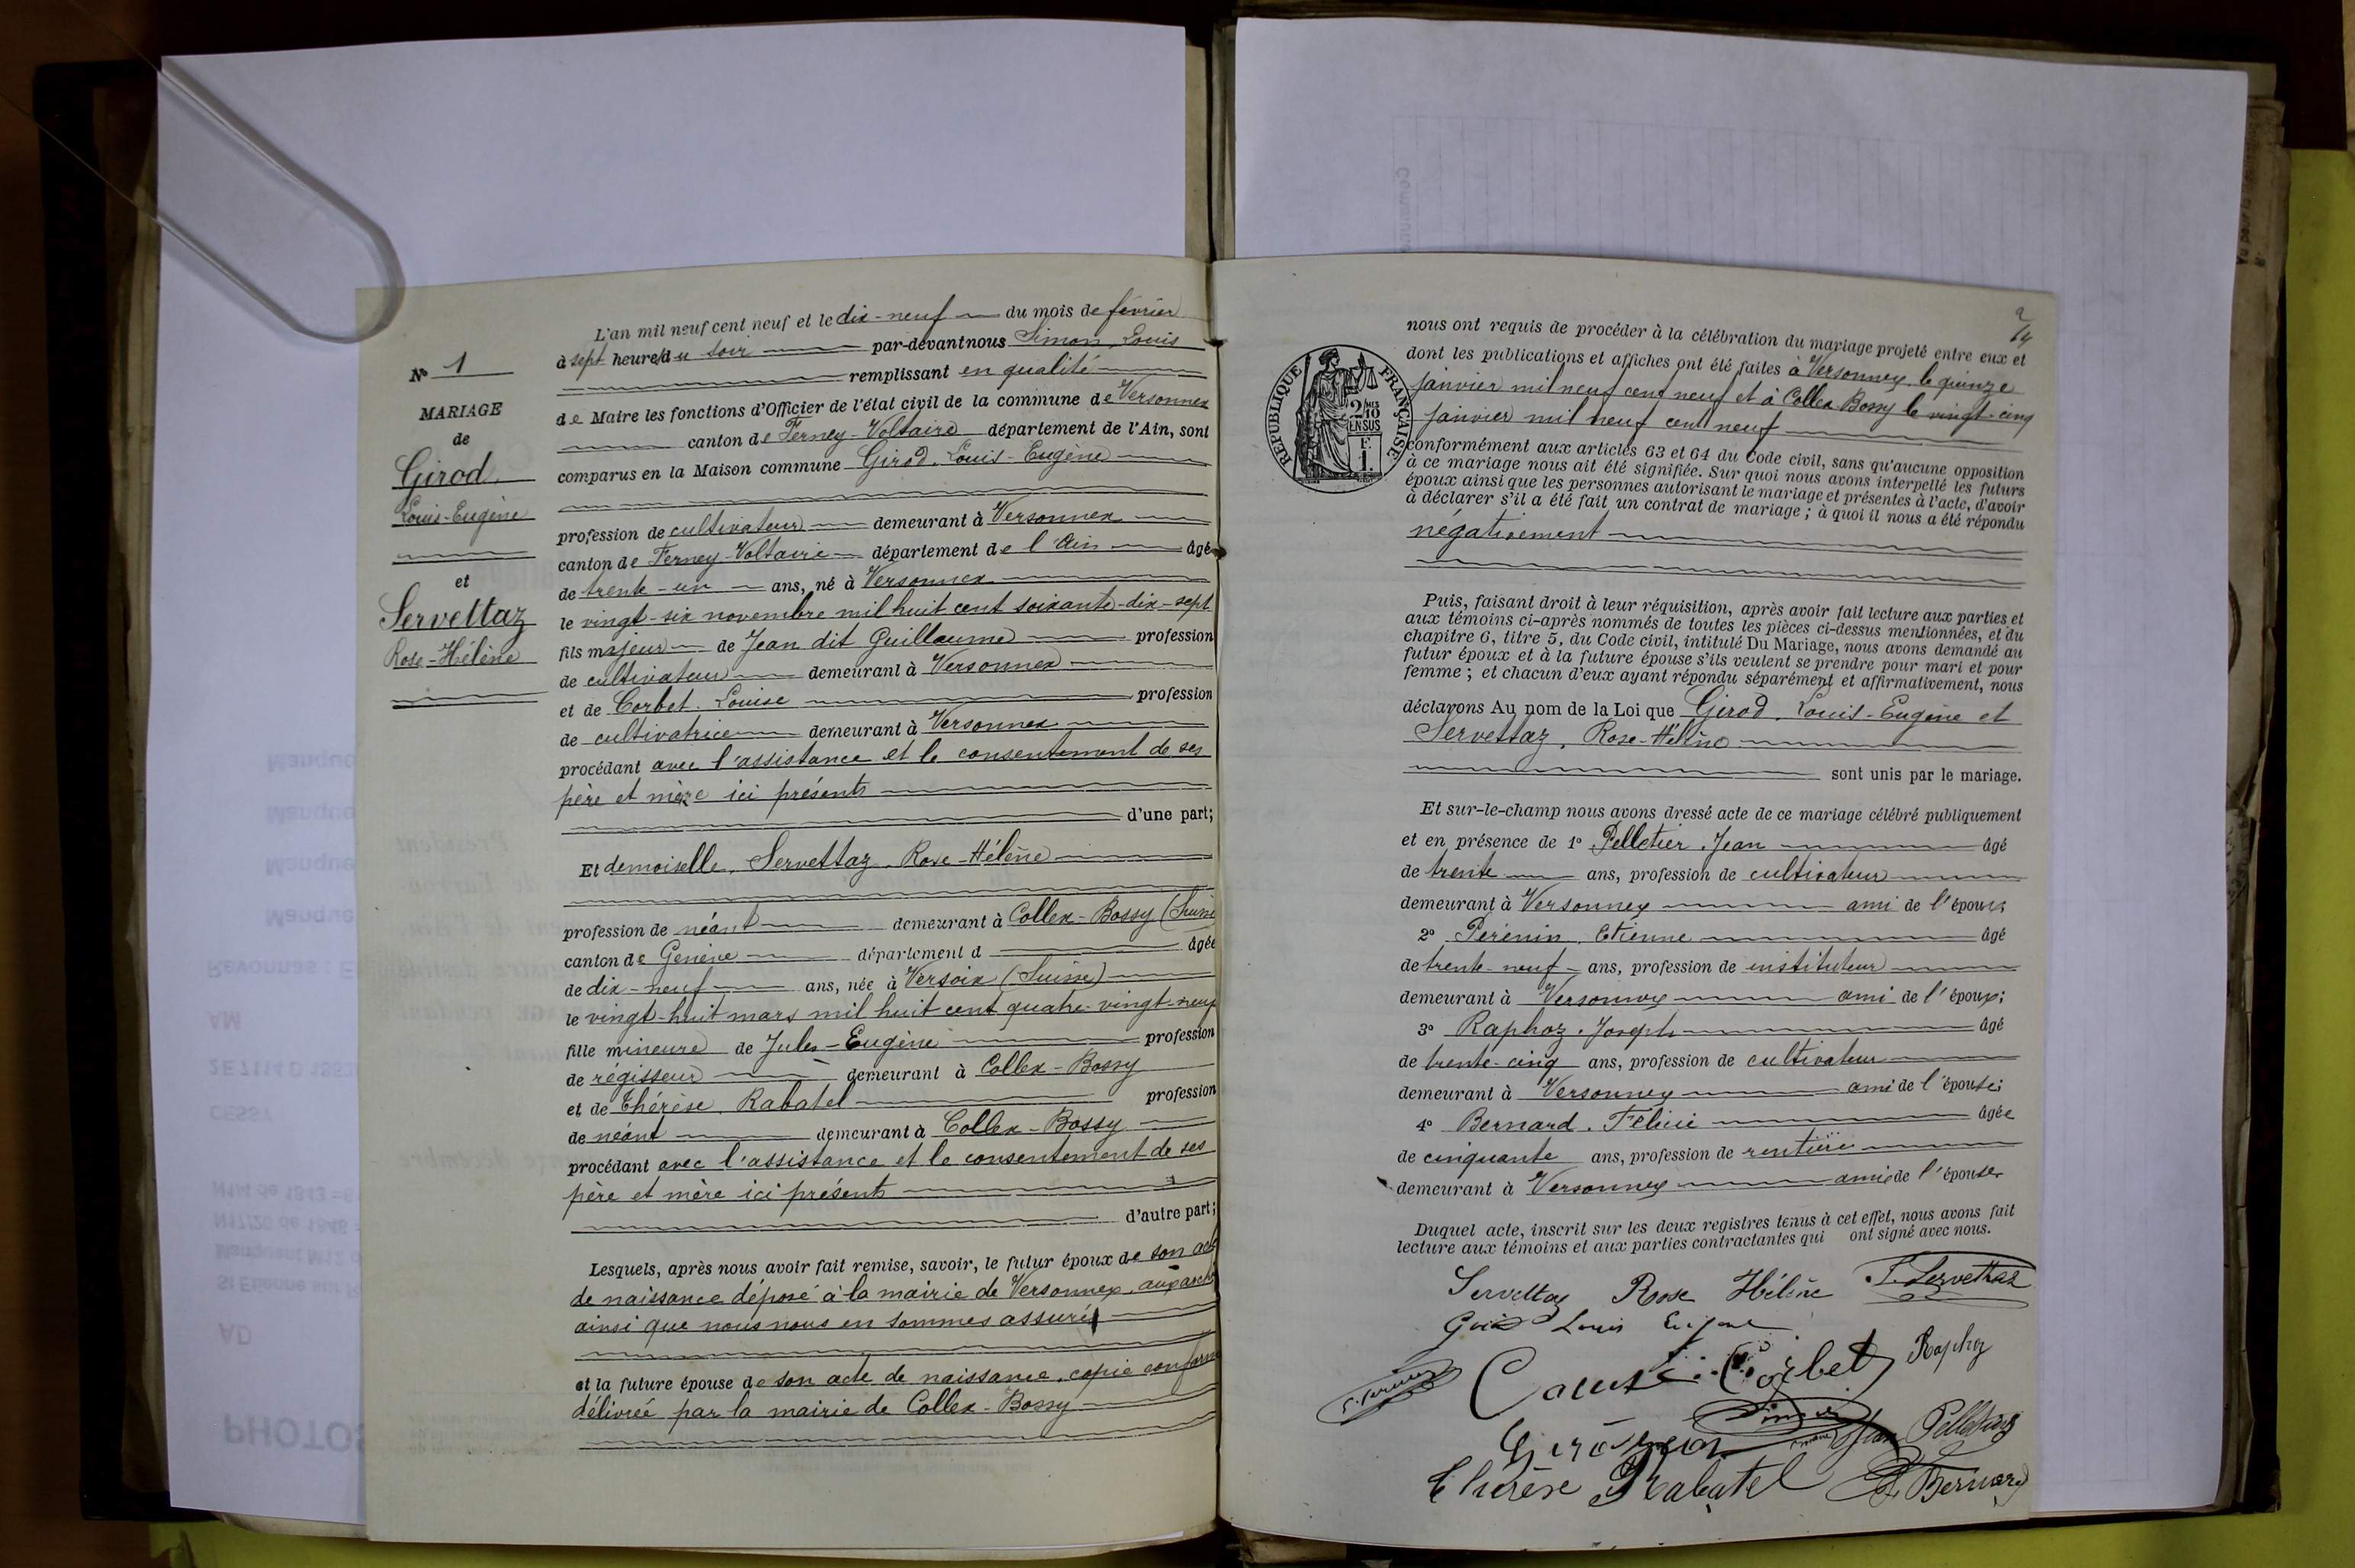 L'an mil neuf cent neuf et le dix-neuf du mois de février
à sept heures du soir par-devant nous Simon, Louis
remplissant en qualité
de Maire les fonctions d'Officier de l'état civil de la commune de Versonnex
canton de Ferney-Voltaire département de l'Ain, sont
comparus en la Maison commune Girod, Louis-Eugène
profession de cultivateur demeurant à Versonnex
canton de Ferney-Voltaire département de l'Ain âgé
de trente-un ans, né à Versonnex
le vingt-six novembre mil huit cent soixante-dix-sept
fils majeur de Jean dit Guillaume profession
de cultivateur demeurant à Versonnex
et de Corbet. Louise profession
de cultivatrice demeurant à Versonnex
procédant avec l'assistance et le consentement de ses
père et mère ici présents
d'une part;
Et demoiselle, Servettaz. Rose-Hélène
profession de néant demeurant à Collex-Bossy (Suisse
canton de Genève département d âgée
de dix-neuf ans, née à Versoix (Suisse)
le vingt-huit mars mil huit cent quatre-vingt-neuf
fille mineure de Jules-Eugène profession
de régisseur demeurant à Collex-Bossy
et de Thérèse. Rabatel profession
de néant demeurant à Collex-Bossy
procédant avec l'assistance et le consentement de ses
père et mère ici présents
d'autre part;
Lesquels, après nous avoir fait remise, savoir, le futur époux de son acte
de naissance déposé à la mairie de Versonnex, aux
ainsi que nous nous en sommes assuré
et la future épouse de son acte de naissance, copie conforme
délivrée par la mairie de Collex-Bossy
N° 1
MARIAGE
de
Girod
Louis-Eugène
et
Servettaz
Rose-Hélène
Manque
Manque
Manque
Manque
Revonnas : E
AM
CESSY
AD
PHOTOS
2
nous ont requis de procéder à la célébration du mariage projeté entre eux et
dont les publications et affiches ont été faites à Versonnex, le quinze
janvier mil neuf cent neuf et à Collex Bossy le vingt-cinq
janvier mil neuf cent neuf
RÉPUBLIQUE FRANÇAISE
2/10
EN SUS
F.
1.
conformément aux articles 63 et 64 du Code civil, sans qu'aucune opposition
à ce mariage nous ait été signifiée. Sur quoi nous avons interpellé les futurs
époux ainsi que les personnes autorisant le mariage et présentes à l'acte, d'avoir
à déclarer s'il a été fait un contrat de mariage ; à quoi il nous a été répondu
négativement
Puis, faisant droit à leur réquisition, après avoir fait lecture aux parties et
aux témoins ci-après nommés de toutes les pièces ci-dessus mentionnées, et du
chapitre 6, titre 5, du Code civil, intitulé Du Mariage, nous avons demandé au
futur époux et à la future épouse s'ils veulent se prendre pour mari et pour
femme ; et chacun d'eux ayant répondu séparément et affirmativement, nous
déclarons Au nom de la Loi que Girod. Louis-Eugène et
Servettaz, Rose-Hélène
sont unis par le mariage.
Et sur-le-champ nous avons dressé acte de ce mariage célébré publiquement
et en présence de 1° Pelletier. Jean âgé
de trente ans, profession de cultivateur
demeurant à Versonnex ami de l'époux;
2° Perenin. Etienne âgé
de trente-neuf ans, profession de instituteur
demeurant à Versonnex ami de l'époux;
3° Raphoz. Joseph âgé
de trente-cinq ans, profession de cultivateur
demeurant à Versonnex ami de l'épouse;
4° Bernard. Félicie âgée
de cinquante ans, profession de rentière
demeurant à Versonnex amie de l'épouse
Duquel acte, inscrit sur les deux registres tenus à cet effet, nous avons fait
lecture aux témoins et aux parties contractantes qui ont signé avec nous.
Servettaz Rose Hélène J. Servettaz
Girod Louis Eugène
Raphoz
Louise Corbet
Simon
Girod Jean
Jean Pelletier
Thérèse Rabatel
F. Bernard